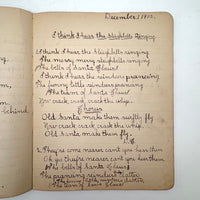 December 1900.
I think I hear the sleighbells ringing
I think I hear the sleighbells ringing
The merry merry sleighbells ringing
The bells of Santa Claus!
I think I hear the reindeers prancing
The funny little reindeers prancing
The team of Santa Claus!
Now crack, crack, crack the whip.
Chorus
Old Santa makes them swiftly fly
Now crack, crack, crack the whip.
Old Santa makes them fly.
2. They're come nearer cant you hear them
Oh yes they're nearer cant you hear them
The bells of Santa Claus!
The prancing reindeers
The team of Santa Claus!
behind